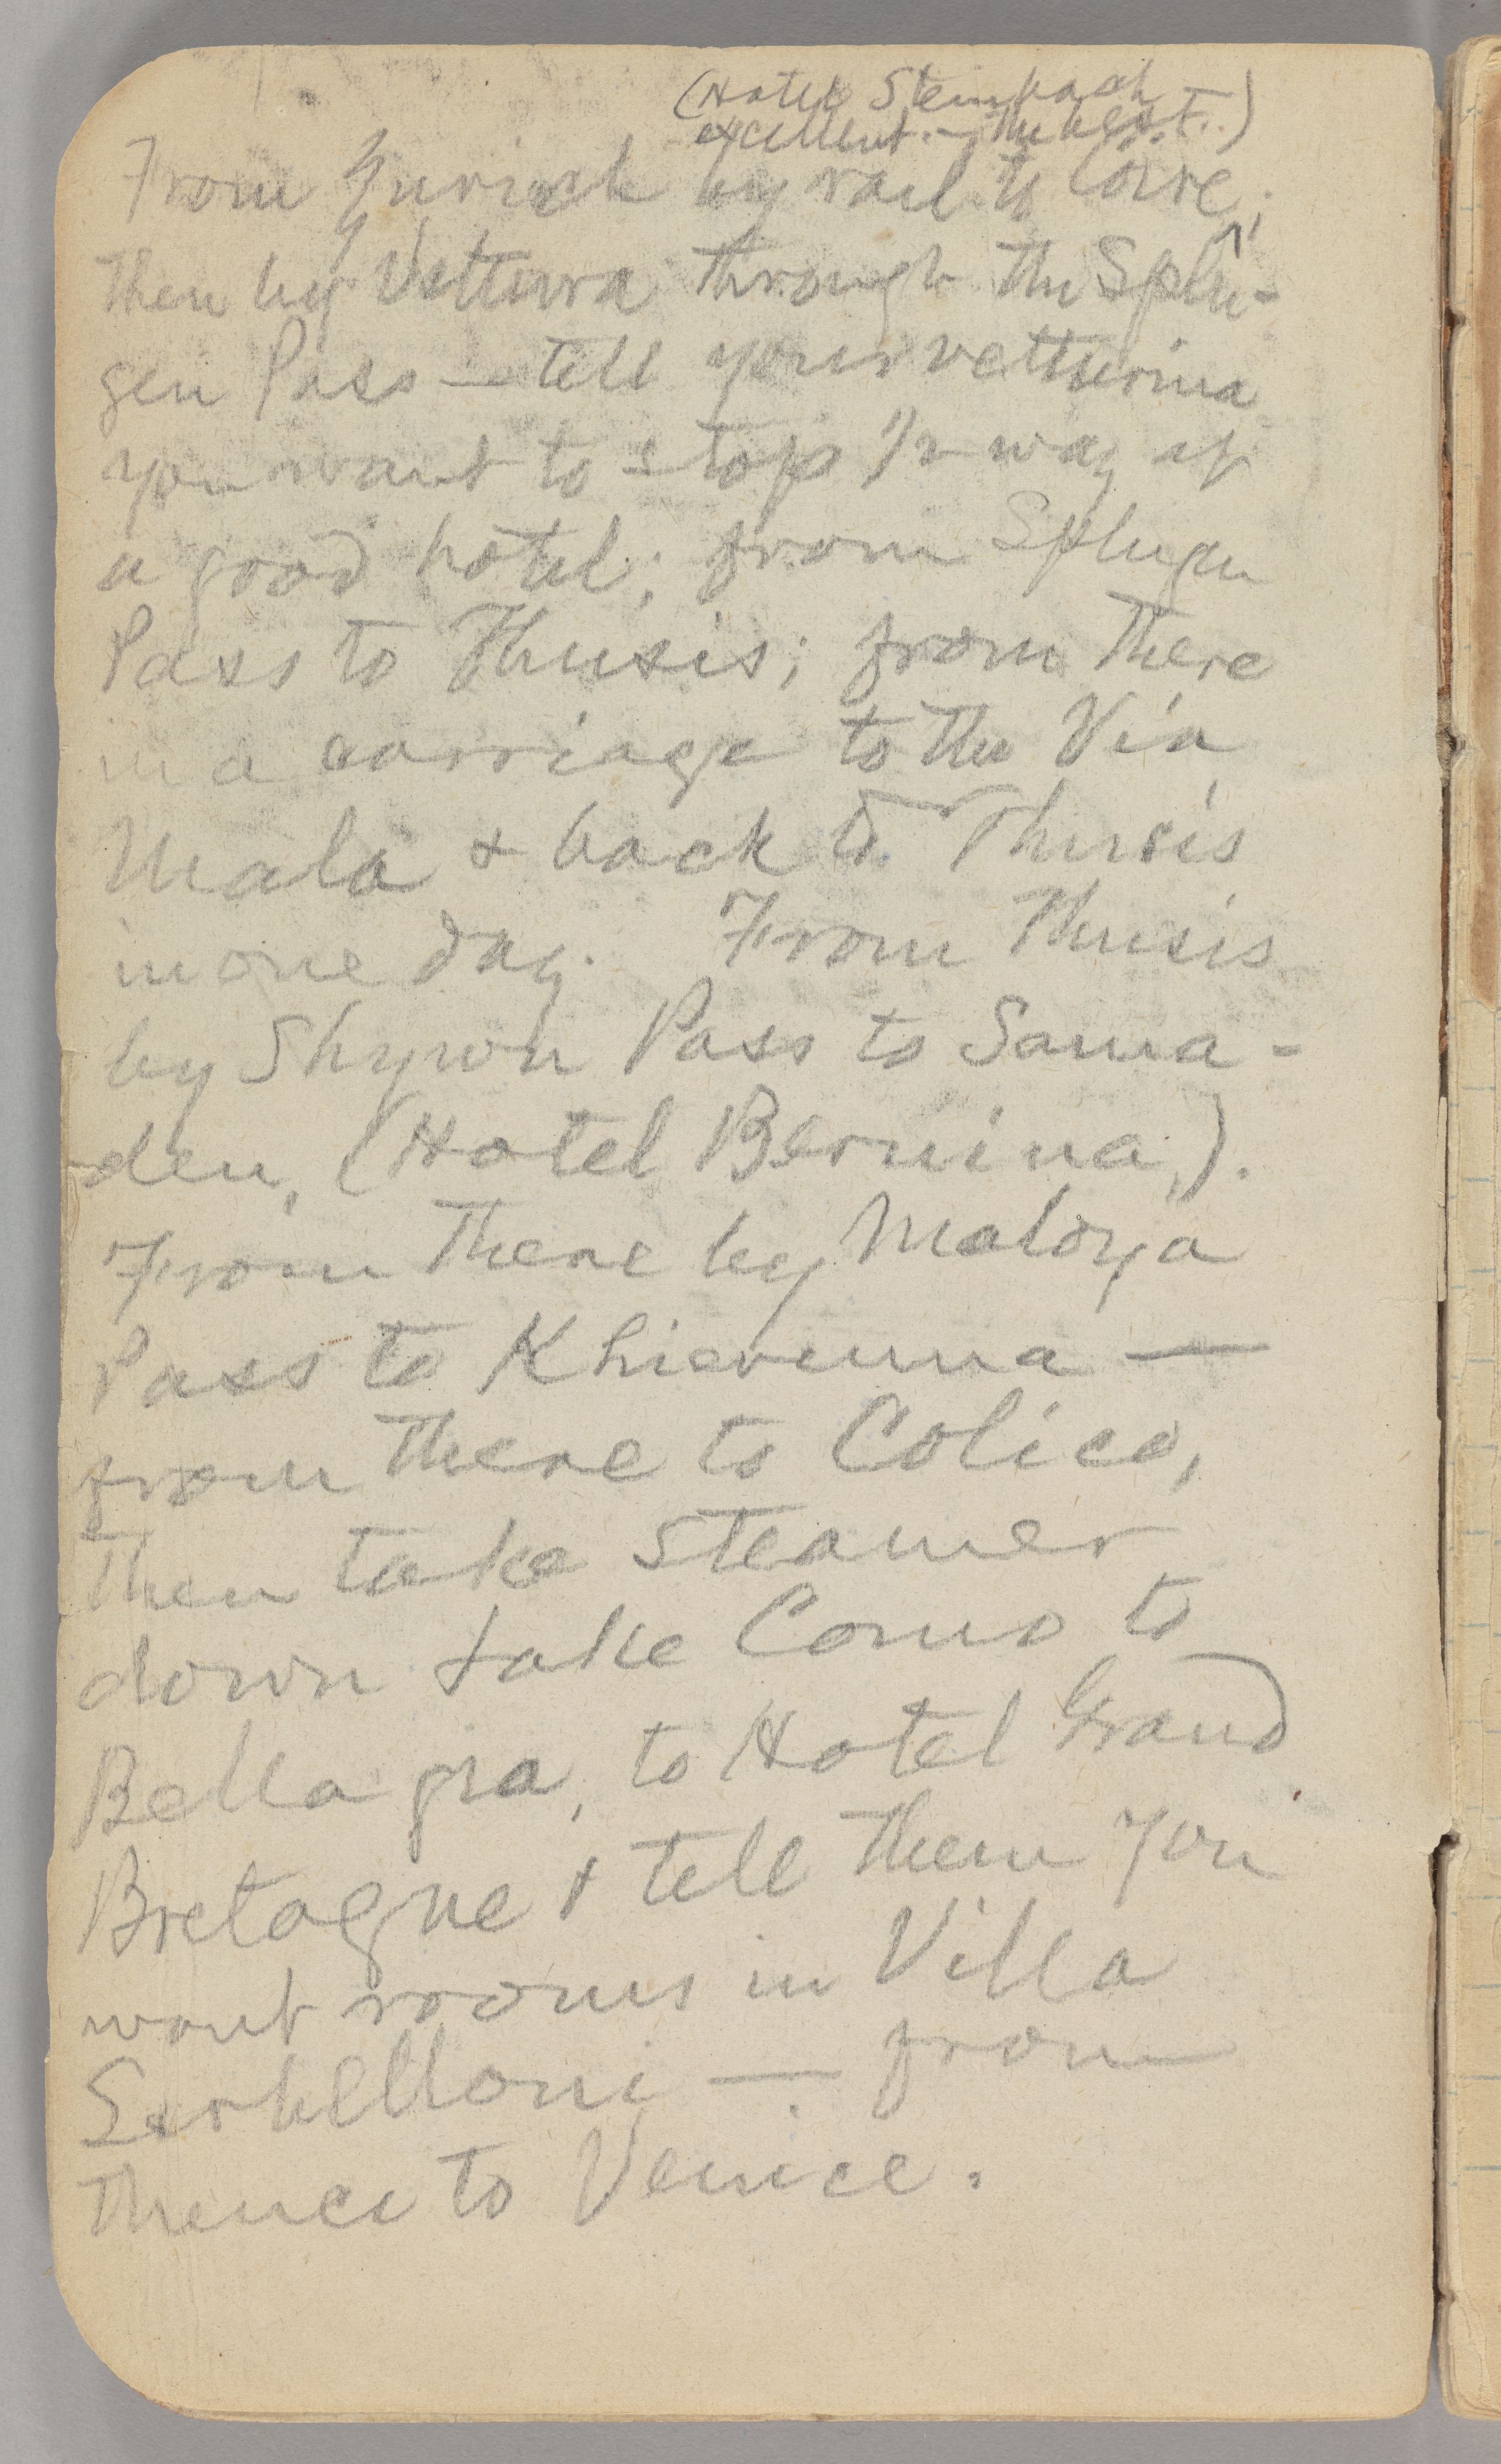 (Hotel Steinbach
excellent.—the best.)
From Zurich by rail to Coire,
then by Vettura through the Splü-
gen Pass—tell your vetturina
you want to stop 1/2 way at
a good hotel; from Splugen
Pass to Thusis; from there
in a carriage to the Via
Mala & back to Thusis
in one day. From Thusis
by Shywn Pass to Sama-
den, (Hotel Bernina,).
From there by Maloya
Pass to Khiavenna —
from there to Colico,
then take steamer
down Lake Como to
Bellagia, to Hotel Grand
Bretagne & tell them you
want rooms in Villa
Serbelloni — from
thence to Venice.